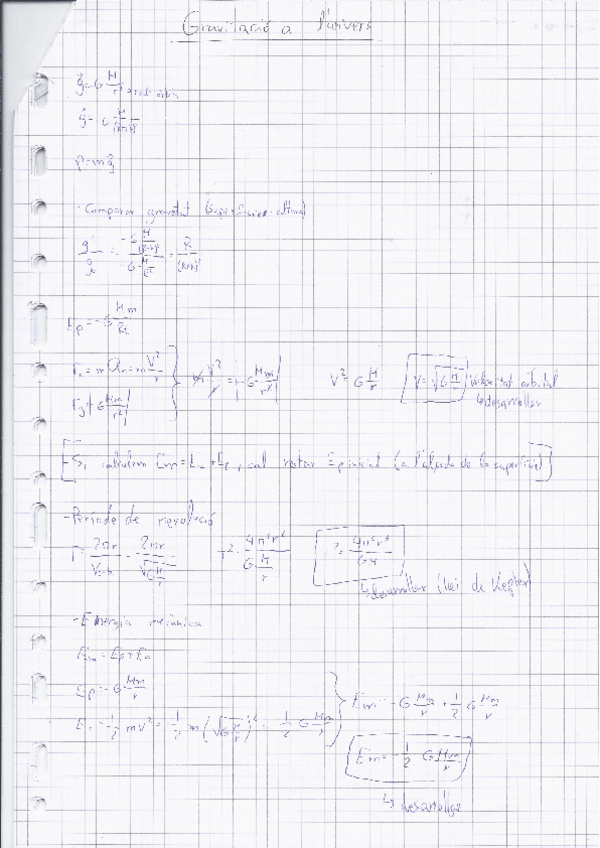 Gravitació a l'univers
g = G M/r²
g = G M/(R+h)²
P = mg
- Comparar gravetat (superfície-altura)
g'/g = (-G M/(R+h)²)/(-G M/R²) = R/(R+h)²
Ep = -G Mm/R
Fc = m an = m v²/r
Fg = |G Mm/r²|
m v²/r = |-G Mm/r²| v² = G M/r v = √(G M/r) velocitat orbital
↳ desarrollar
[- Si calculem Em = Ec + Ep, cal restar Ep inicial (a l'alçada de la superfície)]
- Període de revolució
T = 2πr/Vorb = 2πr/√(G M/r) T² = 4π²r²/(G M/r) T² = 4π²r³/GM
↳ desarrollar (Llei de Kepler)
- Energia mecànica
Em = Ep + Ec
Ep = -G Mm/r
Ec = 1/2 mv² = 1/2 m (√(G M/r))² = 1/2 G Mm/r
Em = -G Mm/r + 1/2 G Mm/r
Em = -1/2 G Mm/r
↳ desarrollar